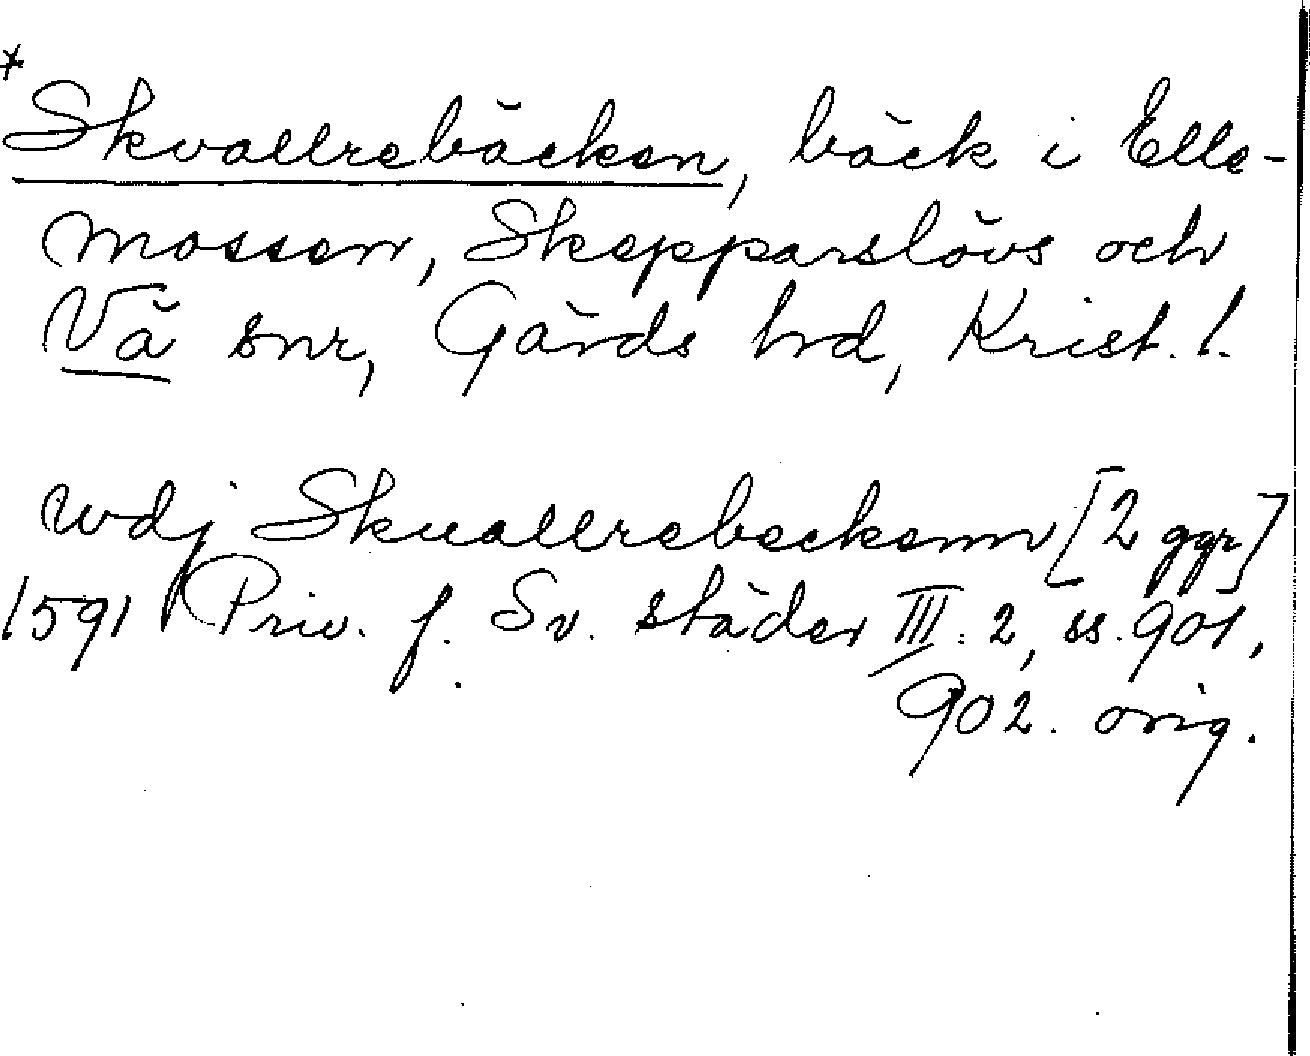 *
Skvallrebäcken, bäck i Elle-
mossen, Skepparslövs och
Vä snr, Gärds hrd, Krist. l.
wdj Skuallrebeckenn [2 ggr]
1591 Priv. f. Sv. städer III: 2, ss. 901,
902. orig.